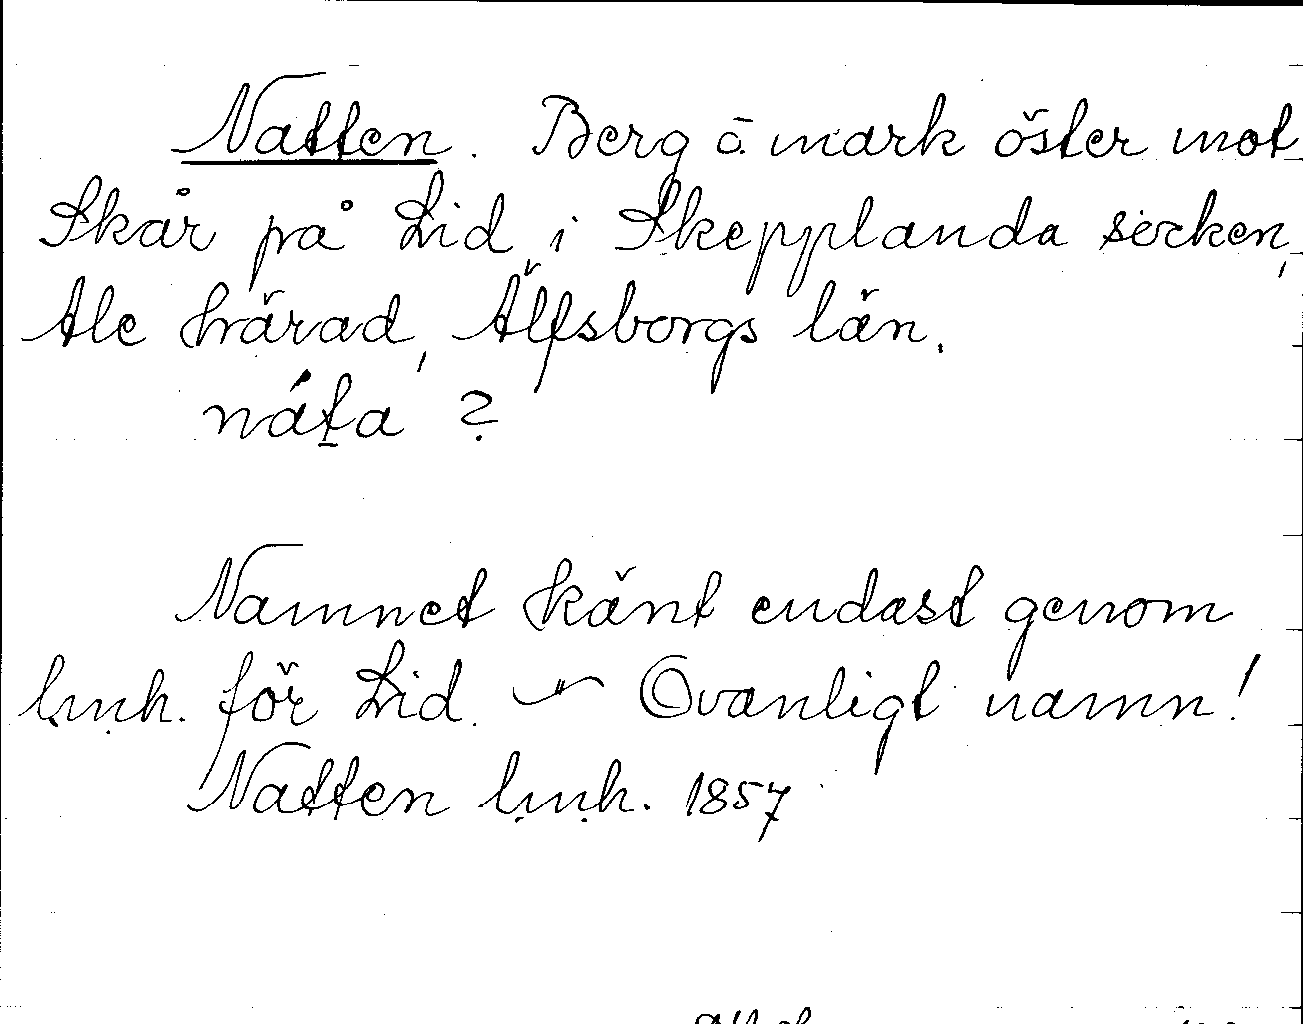 Natten. Berg å mark öster mot
Skår på Lid i Skepplanda socken,
Ale härad, Älfsborgs län.
náta ?
Namnet känt endast genom
lmh. för Lid. — Ovanligt namn!
Natten lmh. 1857